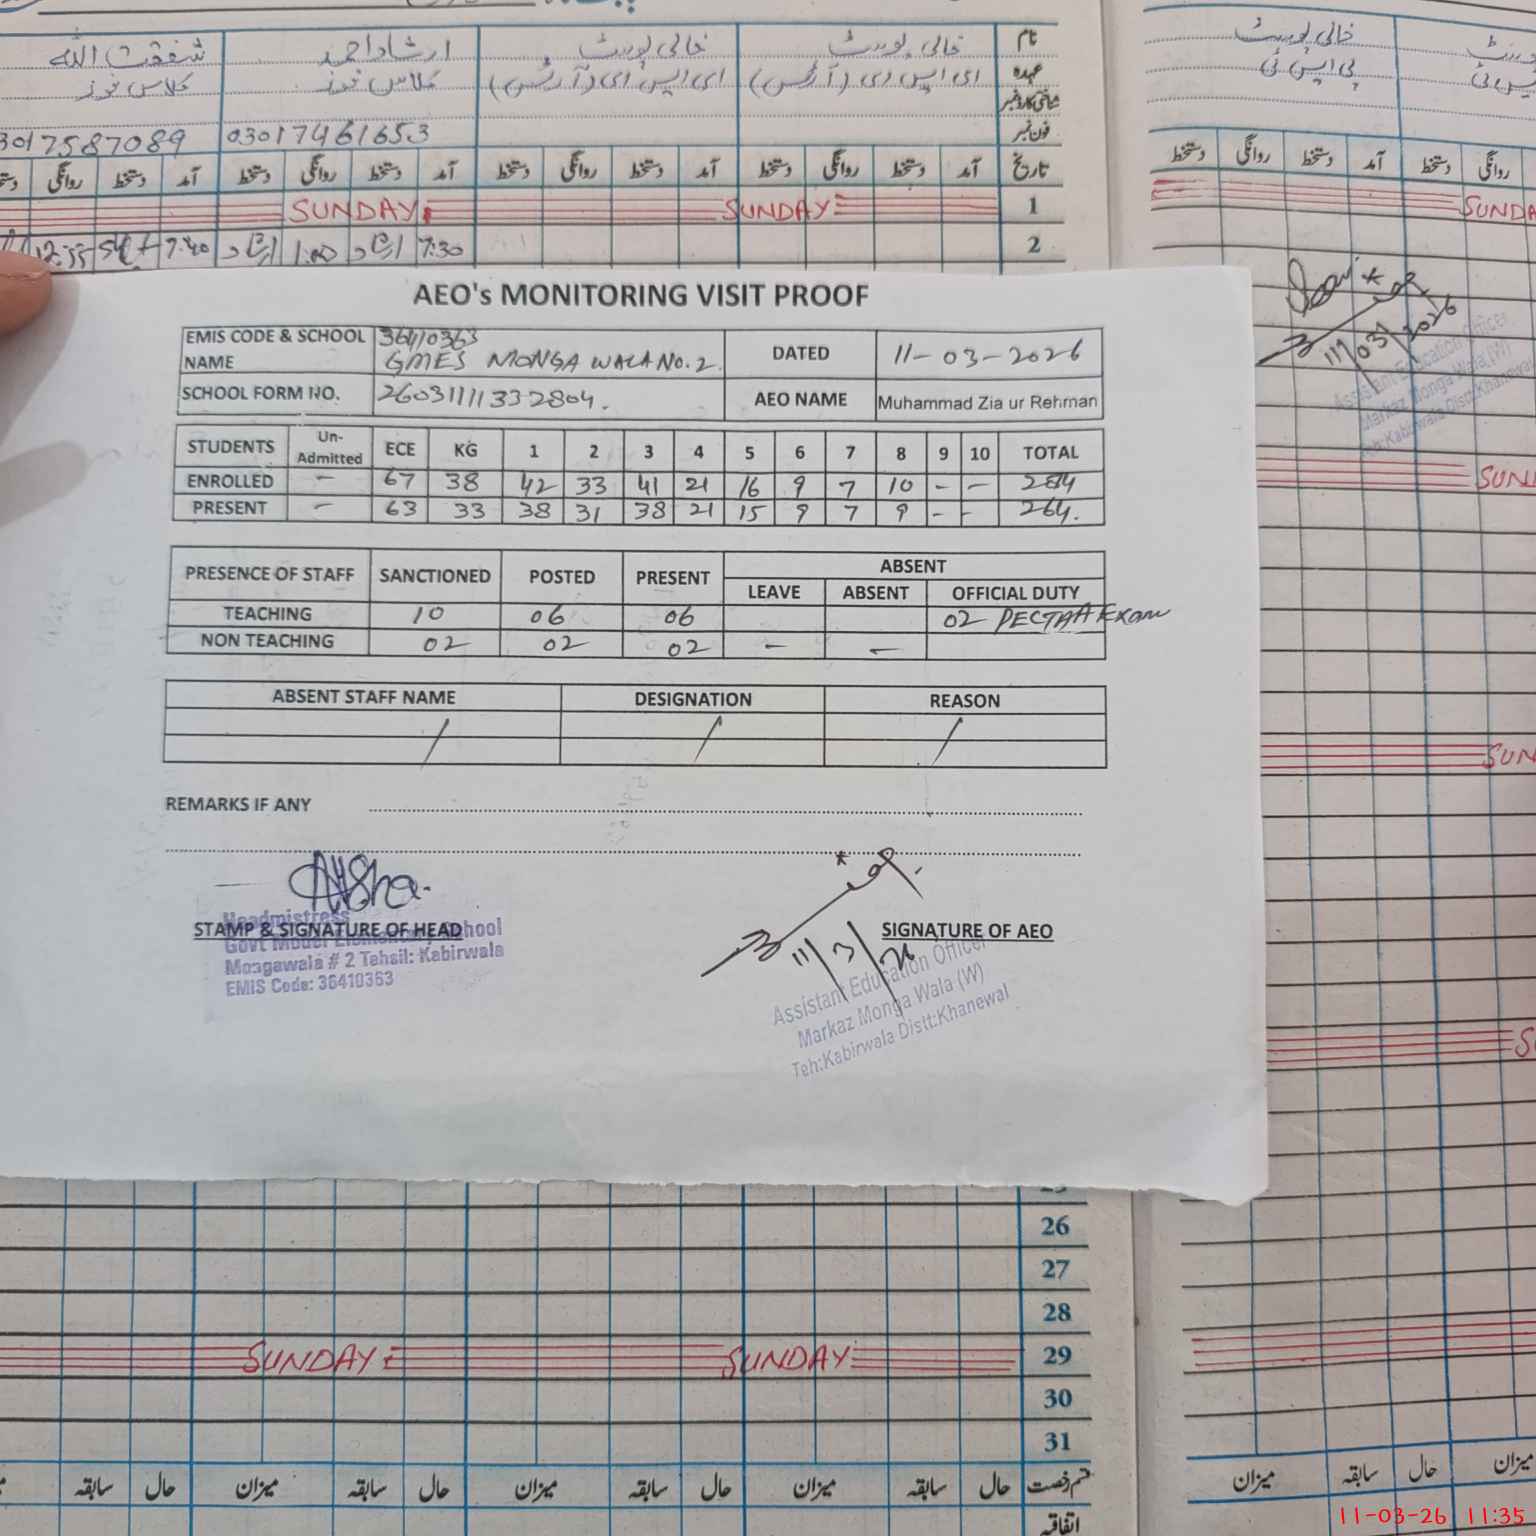 نام خالی پوسٹ خالی پوسٹ ارشاد احمد شفقت اللہ
عہدہ ای ایس ای (آرٹس) ای ایس ای (آرٹس) کلاس فور کلاس فور
شناختی کارڈ نمبر
فون نمبر 03017461653 3017587089
تاریخ آمد دستخط روانگی دستخط آمد دستخط روانگی دستخط آمد دستخط روانگی دستخط آمد دستخط روانگی
1 SUNDAY SUNDAY
2 7:30 ارشاد 1:00 ارشاد 7:40 12:55
خالی پوسٹ
پی ایس ٹی
روانگی دستخط آمد دستخط روانگی دستخط
SUNDA
11/03/2026
Assistant Education Officer
Markaz Monga Wala (W)
Teh:Kabirwala Distt:Khanewal
SUN
SUN
AEO's MONITORING VISIT PROOF
EMIS CODE & SCHOOL NAME 36410363 GMES MONGA WALA No. 2. DATED 11-03-2026
SCHOOL FORM NO. 26031111332804. AEO NAME Muhammad Zia ur Rehman
STUDENTS Un-Admitted ECE KG 1 2 3 4 5 6 7 8 9 10 TOTAL
ENROLLED - 67 38 42 33 41 21 16 9 7 10 - - 284
PRESENT - 63 33 38 31 38 21 15 9 7 9 - - 264.
PRESENCE OF STAFF SANCTIONED POSTED PRESENT ABSENT
LEAVE ABSENT OFFICIAL DUTY
TEACHING 10 06 06 02 PECTAA Exam
NON TEACHING 02 02 02 - -
ABSENT STAFF NAME DESIGNATION REASON
/ / /
REMARKS IF ANY
STAMP & SIGNATURE OF HEAD
Headmistress
Govt Model Elementary School
Mongawala # 2 Tehsil: Kabirwala
EMIS Code: 36410363
11/3/26
SIGNATURE OF AEO
Assistant Education Officer
Markaz Monga Wala (W)
Teh:Kabirwala Distt:Khanewal
26
27
28
29 SUNDAY SUNDAY
30
31
قسم رخصت حال سابقہ میزان حال سابقہ میزان حال سابقہ میزان حال سابقہ
اتفاقیہ
میزان حال سابقہ میزان
11-03-26 11:35